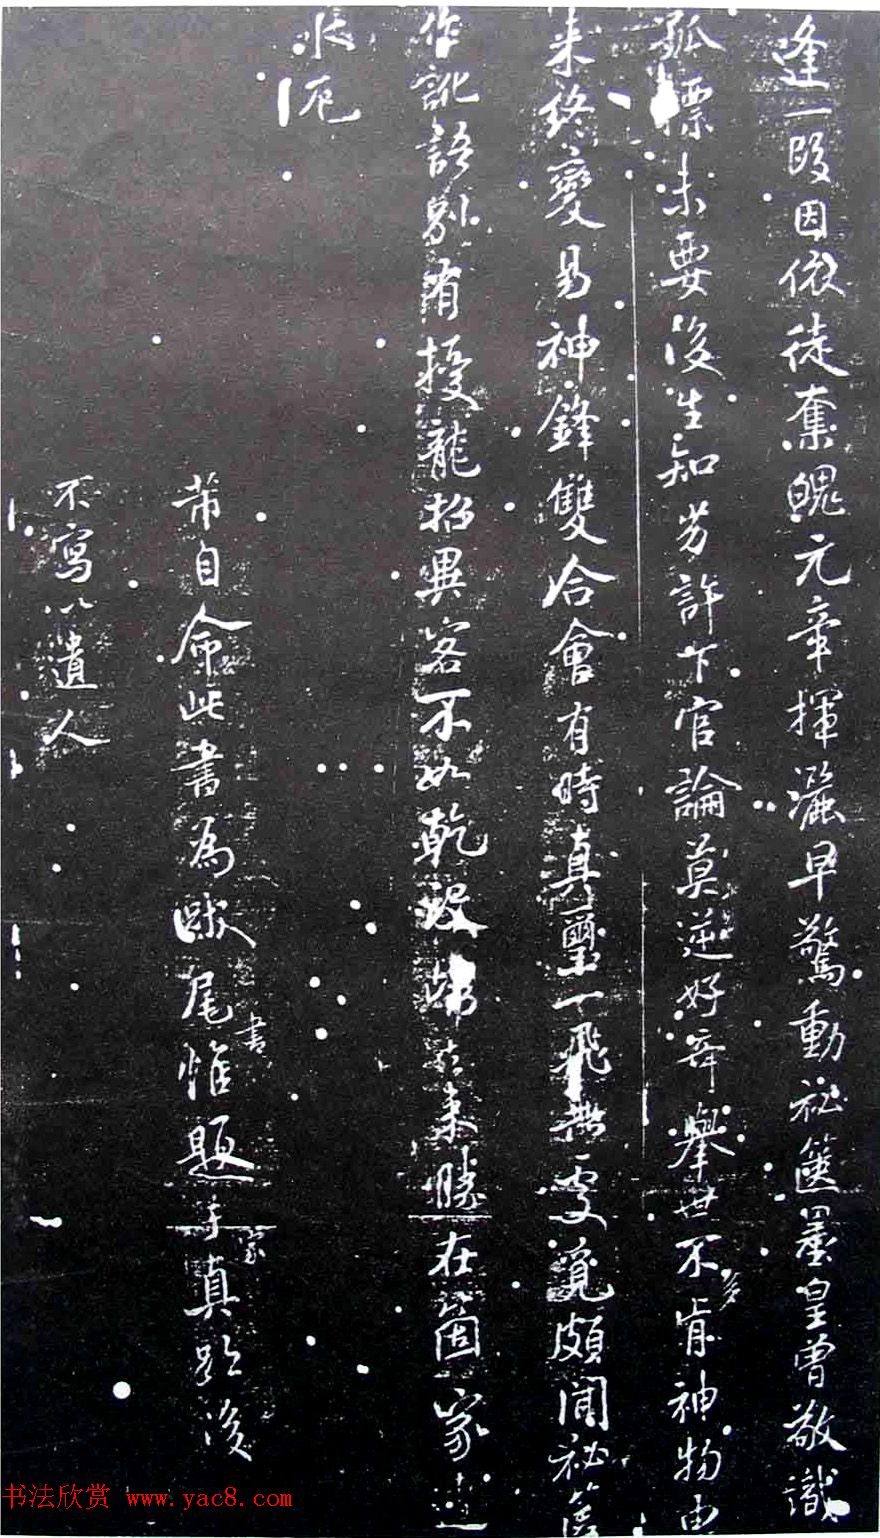 逢一段因依徒奪魄元章揮灑早驚動祕篋墨皇曾敬識
孤標未要後生知芳許下官論莫逆好奇舉世不肯多神物由
来終變易神鋒雙合會有時真璽一飛無處覓頗聞祕篋
作訛語別有授龍招異客不如乾没歸去来勝在箇家遭
水厄
芾自命此書為跋尾書惟題于真家跡後
不寫以遺人
书法欣赏 www.yac8.com